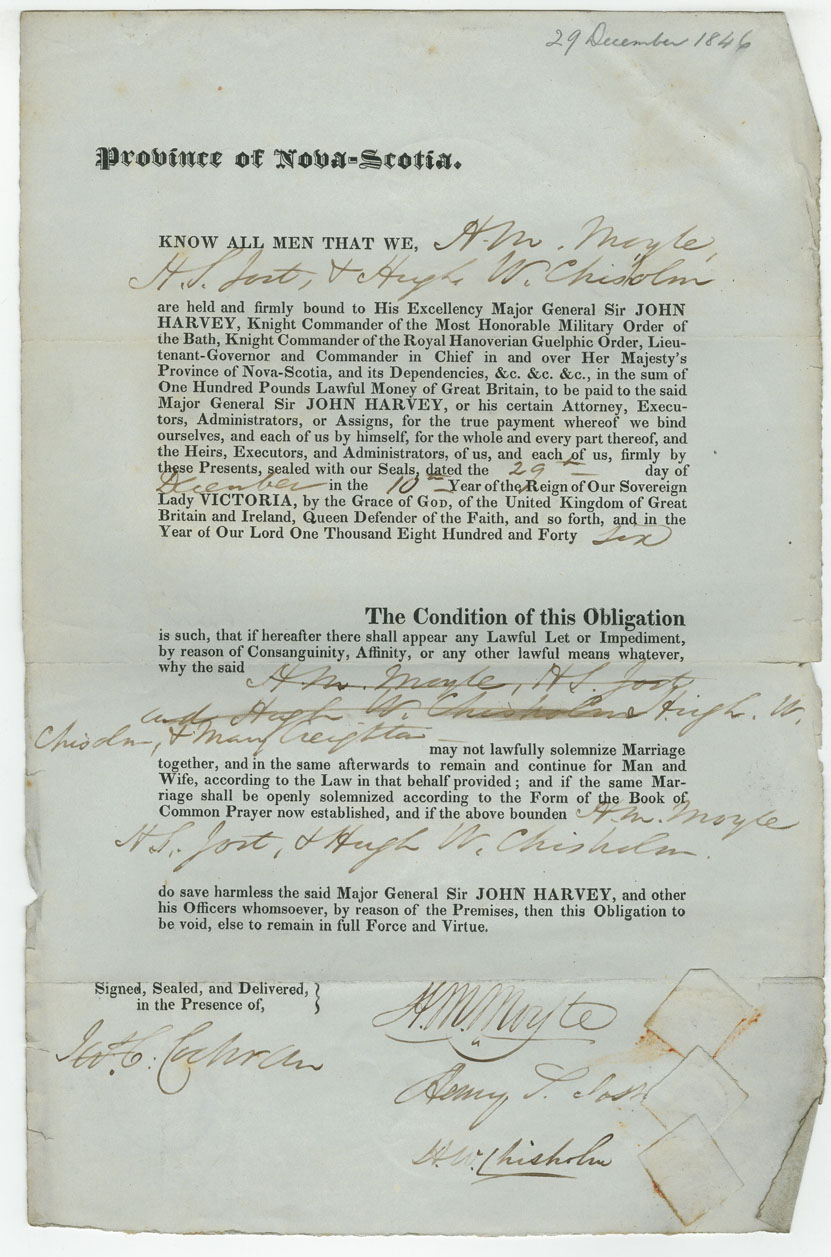 29 December 1846
Province of Nova-Scotia.
KNOW ALL MEN THAT WE, H. M. Moyle,
H. S. Jost, & Hugh W. Chisolm
are held and firmly bound to His Excellency Major General Sir JOHN
HARVEY, Knight Commander of the Most Honorable Military Order of
the Bath, Knight Commander of the Royal Hanoverian Guelphic Order, Lieu-
tenant-Governor and Commander in Chief in and over Her Majesty's
Province of Nova-Scotia, and its Dependencies, &c. &c. &c., in the sum of
One Hundred Pounds Lawful Money of Great Britain, to be paid to the said
Major General Sir JOHN HARVEY, or his certain Attorney, Execu-
tors, Administrators, or Assigns, for the true payment whereof we bind
ourselves, and each of us by himself, for the whole and every part thereof, and
the Heirs, Executors, and Administrators, of us, and each of us, firmly by
these Presents, sealed with our Seals, dated the 29th day of
December in the 10th Year of the Reign of Our Sovereign
Lady VICTORIA, by the Grace of GOD, of the United Kingdom of Great
Britain and Ireland, Queen Defender of the Faith, and so forth, and in the
Year of Our Lord One Thousand Eight Hundred and Forty Six
The Condition of this Obligation
is such, that if hereafter there shall appear any Lawful Let or Impediment,
by reason of Consanguinity, Affinity, or any other lawful means whatever,
why the said H M. Moyle, H S. Jost,
and Hugh W. Chisholm Hugh. W.
Chisolm, & Mary Creighton
may not lawfully solemnize Marriage
together, and in the same afterwards to remain and continue for Man and
Wife, according to the Law in that behalf provided ; and if the same Mar-
riage shall be openly solemnized according to the Form of the Book of
Common Prayer now established, and if the above bounden H. M. Moyle
H. S. Jost, & Hugh W. Chisholm.
do save harmless the said Major General Sir JOHN HARVEY, and other
his Officers whomsoever, by reason of the Premises, then this Obligation to
be void, else to remain in full Force and Virtue.
Signed, Sealed, and Delivered,
in the Presence of,
H. M. Moyle
C. Cochran
Henry S. Jost
H. W. Chisholm